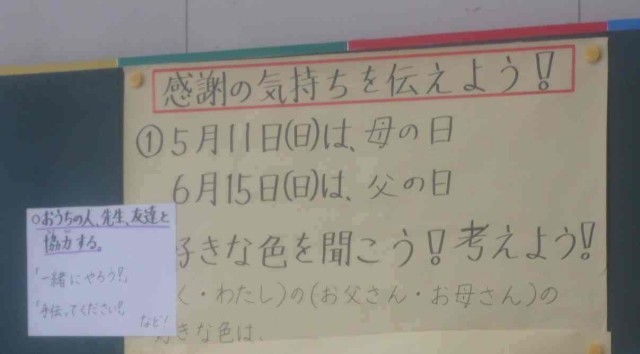 感謝の気持ちを伝えよう!
①5月11日(日)は、母の日
6月15日(日)は、父の日
好きな色を聞こう!考えよう!
く・わたし)の(お父さん・お母さん)の
好きな色は、
○おうちの人、先生、友達と
協力する。
「一緒にやろう!」
「手伝ってください!」
など!